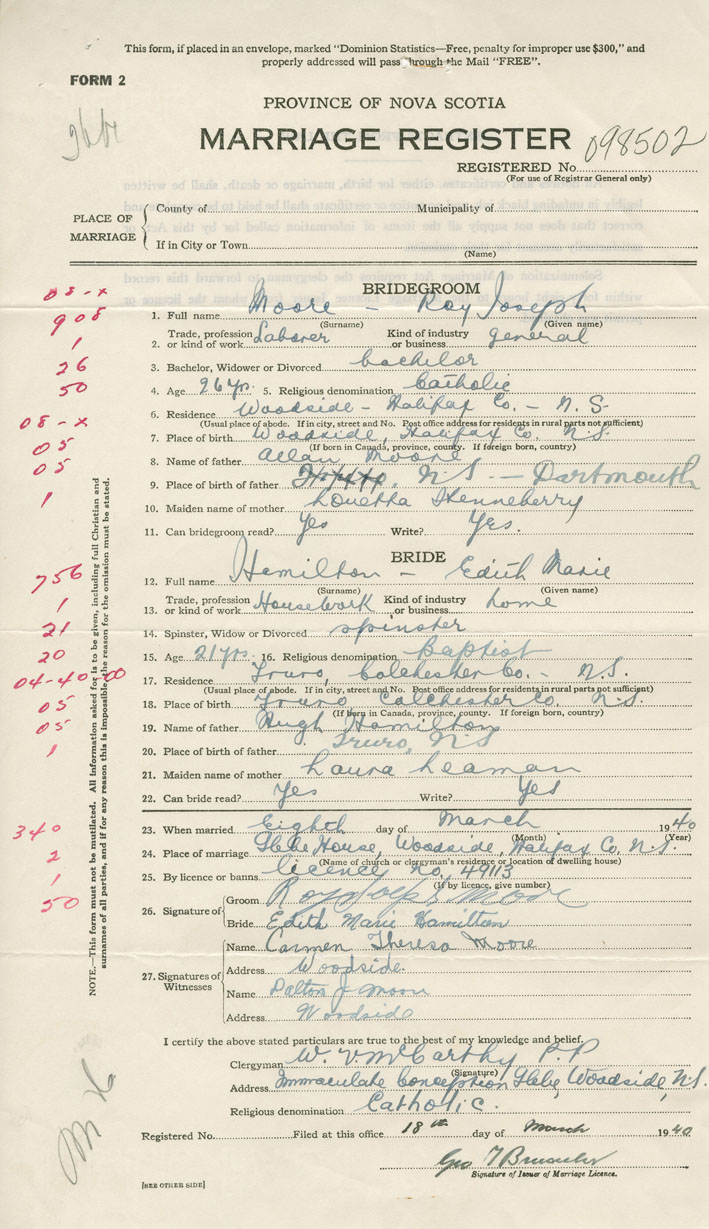 This form, if placed in an envelope, marked "Dominion Statistics—Free, penalty for improper use $300," and
properly addressed will pass through the Mail "FREE".
FORM 2
PROVINCE OF NOVA SCOTIA
MARRIAGE REGISTER 098502
REGISTERED No.
(For use of Registrar General only)
PLACE OF MARRIAGE
County of Municipality of
If in City or Town
(Name)
BRIDEGROOM
08-x
1. Full name Moore - Roy Joseph
(Surname) (Given name)
908
Trade, profession Kind of industry
2. or kind of work Laborer or business general
1
3. Bachelor, Widower or Divorced bachelor
26
4. Age 26 yrs. 5. Religious denomination Catholic
50
6. Residence Woodside - Halifax Co. - N.S.
(Usual place of abode. If in city, street and No. Post office address for residents in rural parts not sufficient)
08-x
7. Place of birth Woodside, Halifax Co. N.S.
(If born in Canada, province, county. If foreign born, country)
05
8. Name of father Allan Moore
05
9. Place of birth of father N.S. - Dartmouth
1
10. Maiden name of mother Louetta Henneberry
11. Can bridegroom read? Yes Write? Yes.
BRIDE
12. Full name Hamilton - Edith Marie
(Surname) (Given name)
756
Trade, profession Kind of industry
13. or kind of work Housework or business home
1
14. Spinster, Widow or Divorced spinster
21
15. Age 21 yrs. 16. Religious denomination Baptist
20
17. Residence Truro, Colchester Co. - N.S.
(Usual place of abode. If in city, street and No. Post office address for residents in rural parts not sufficient)
04-40-00
18. Place of birth Truro Colchester Co. N.S.
(If born in Canada, province, county. If foreign born, country)
05
19. Name of father Hugh Hamilton
05
20. Place of birth of father Truro, N.S
1
21. Maiden name of mother Laura Leaman
22. Can bride read? Yes Write? Yes
23. When married Eighth day of March 1940
(Month) (Year)
340
24. Place of marriage Glebe House, Woodside, Halifax Co. N.S.
(Name of church or clergyman's residence or location of dwelling house)
2
25. By licence or banns licence No. 49113
(If by licence, give number)
1
50
26. Signature of
Groom Roy Joseph Moore
Bride Edith Marie Hamilton
27. Signatures of Witnesses
Name Carmen Theresa Moore
Address Woodside.
Name Dalton J Moore
Address Woodside
I certify the above stated particulars are true to the best of my knowledge and belief.
Clergyman W. V McCarthy P.P
(Signature)
Address Immaculate Conception Glebe, Woodside, N.S.
Religious denomination Catholic.
Registered No. Filed at this office 18th day of March 1940
Geo T
Signature of Issuer of Marriage Licence.
[SEE OTHER SIDE]
NOTE.—This form must not be mutilated. All information asked for is to be given, including full Christian and
surnames of all parties, and if for any reason this is impossible the reason for the omission must be stated.